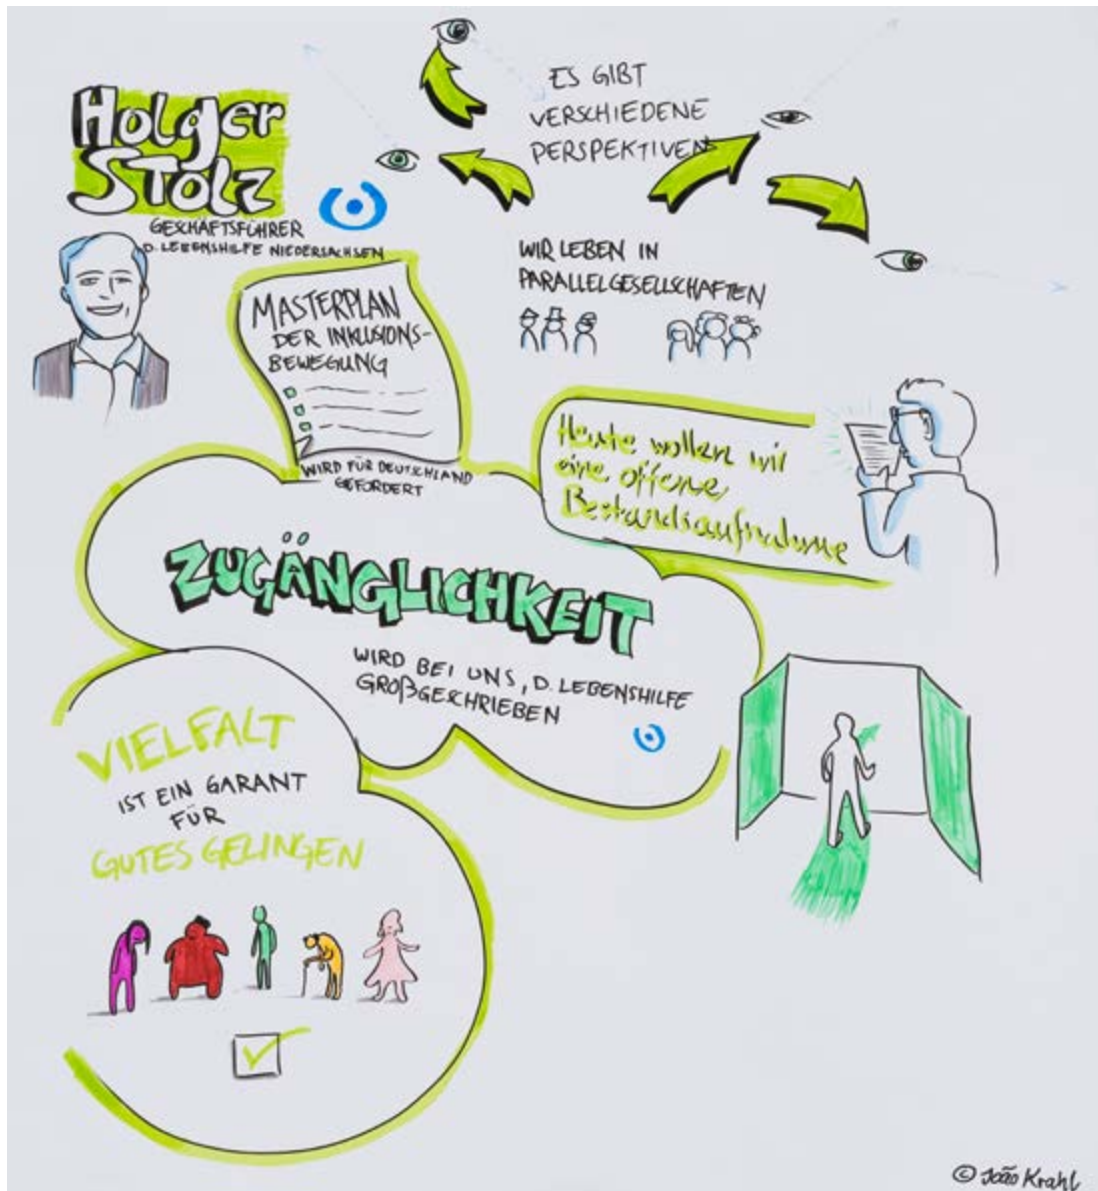 Holger
Stolz
GESCHÄFTSFÜHRER
D. LEBENSHILFE NIEDERSACHSEN
ES GIBT
VERSCHIEDENE
PERSPEKTIVEN
WIR LEBEN IN
PARALLELGESELLSCHAFTEN
MASTERPLAN
DER INKLUSIONS-
BEWEGUNG
WIRD FÜR DEUTSCHLAND
GEFORDERT
Heute wollen wir
eine offene
Bestandsaufnahme
ZUGÄNGLICHKEIT
WIRD BEI UNS, D. LEBENSHILFE
GROßGESCHRIEBEN
VIELFALT
IST EIN GARANT
FÜR
GUTES GELINGEN
© João Krahl